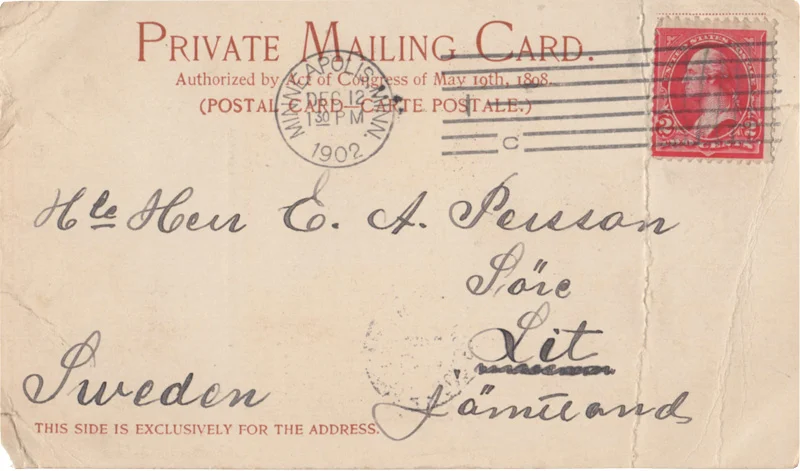 PRIVATE MAILING CARD.
Authorized by Act of Congress of May 19th, 1898.
(POSTAL CARD—CARTE POSTALE.)
MINNEAPOLIS, MINN.
DEC 12
1 30 PM
1902
C
UNITED STATES
2 2
Hle Herr E. A. Persson
Söre
Lit
Jämtland
Sweden
THIS SIDE IS EXCLUSIVELY FOR THE ADDRESS.